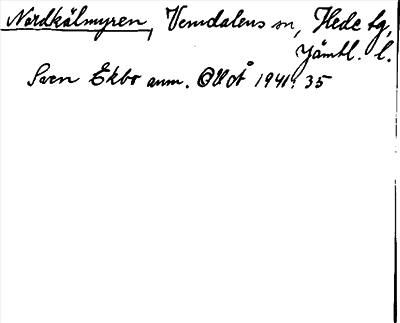 Nordkälmyren, Vemdalens sn, Hede tg,
Jämtl. l.
Sven Ekbo anm. OUoÅ 1941: 35